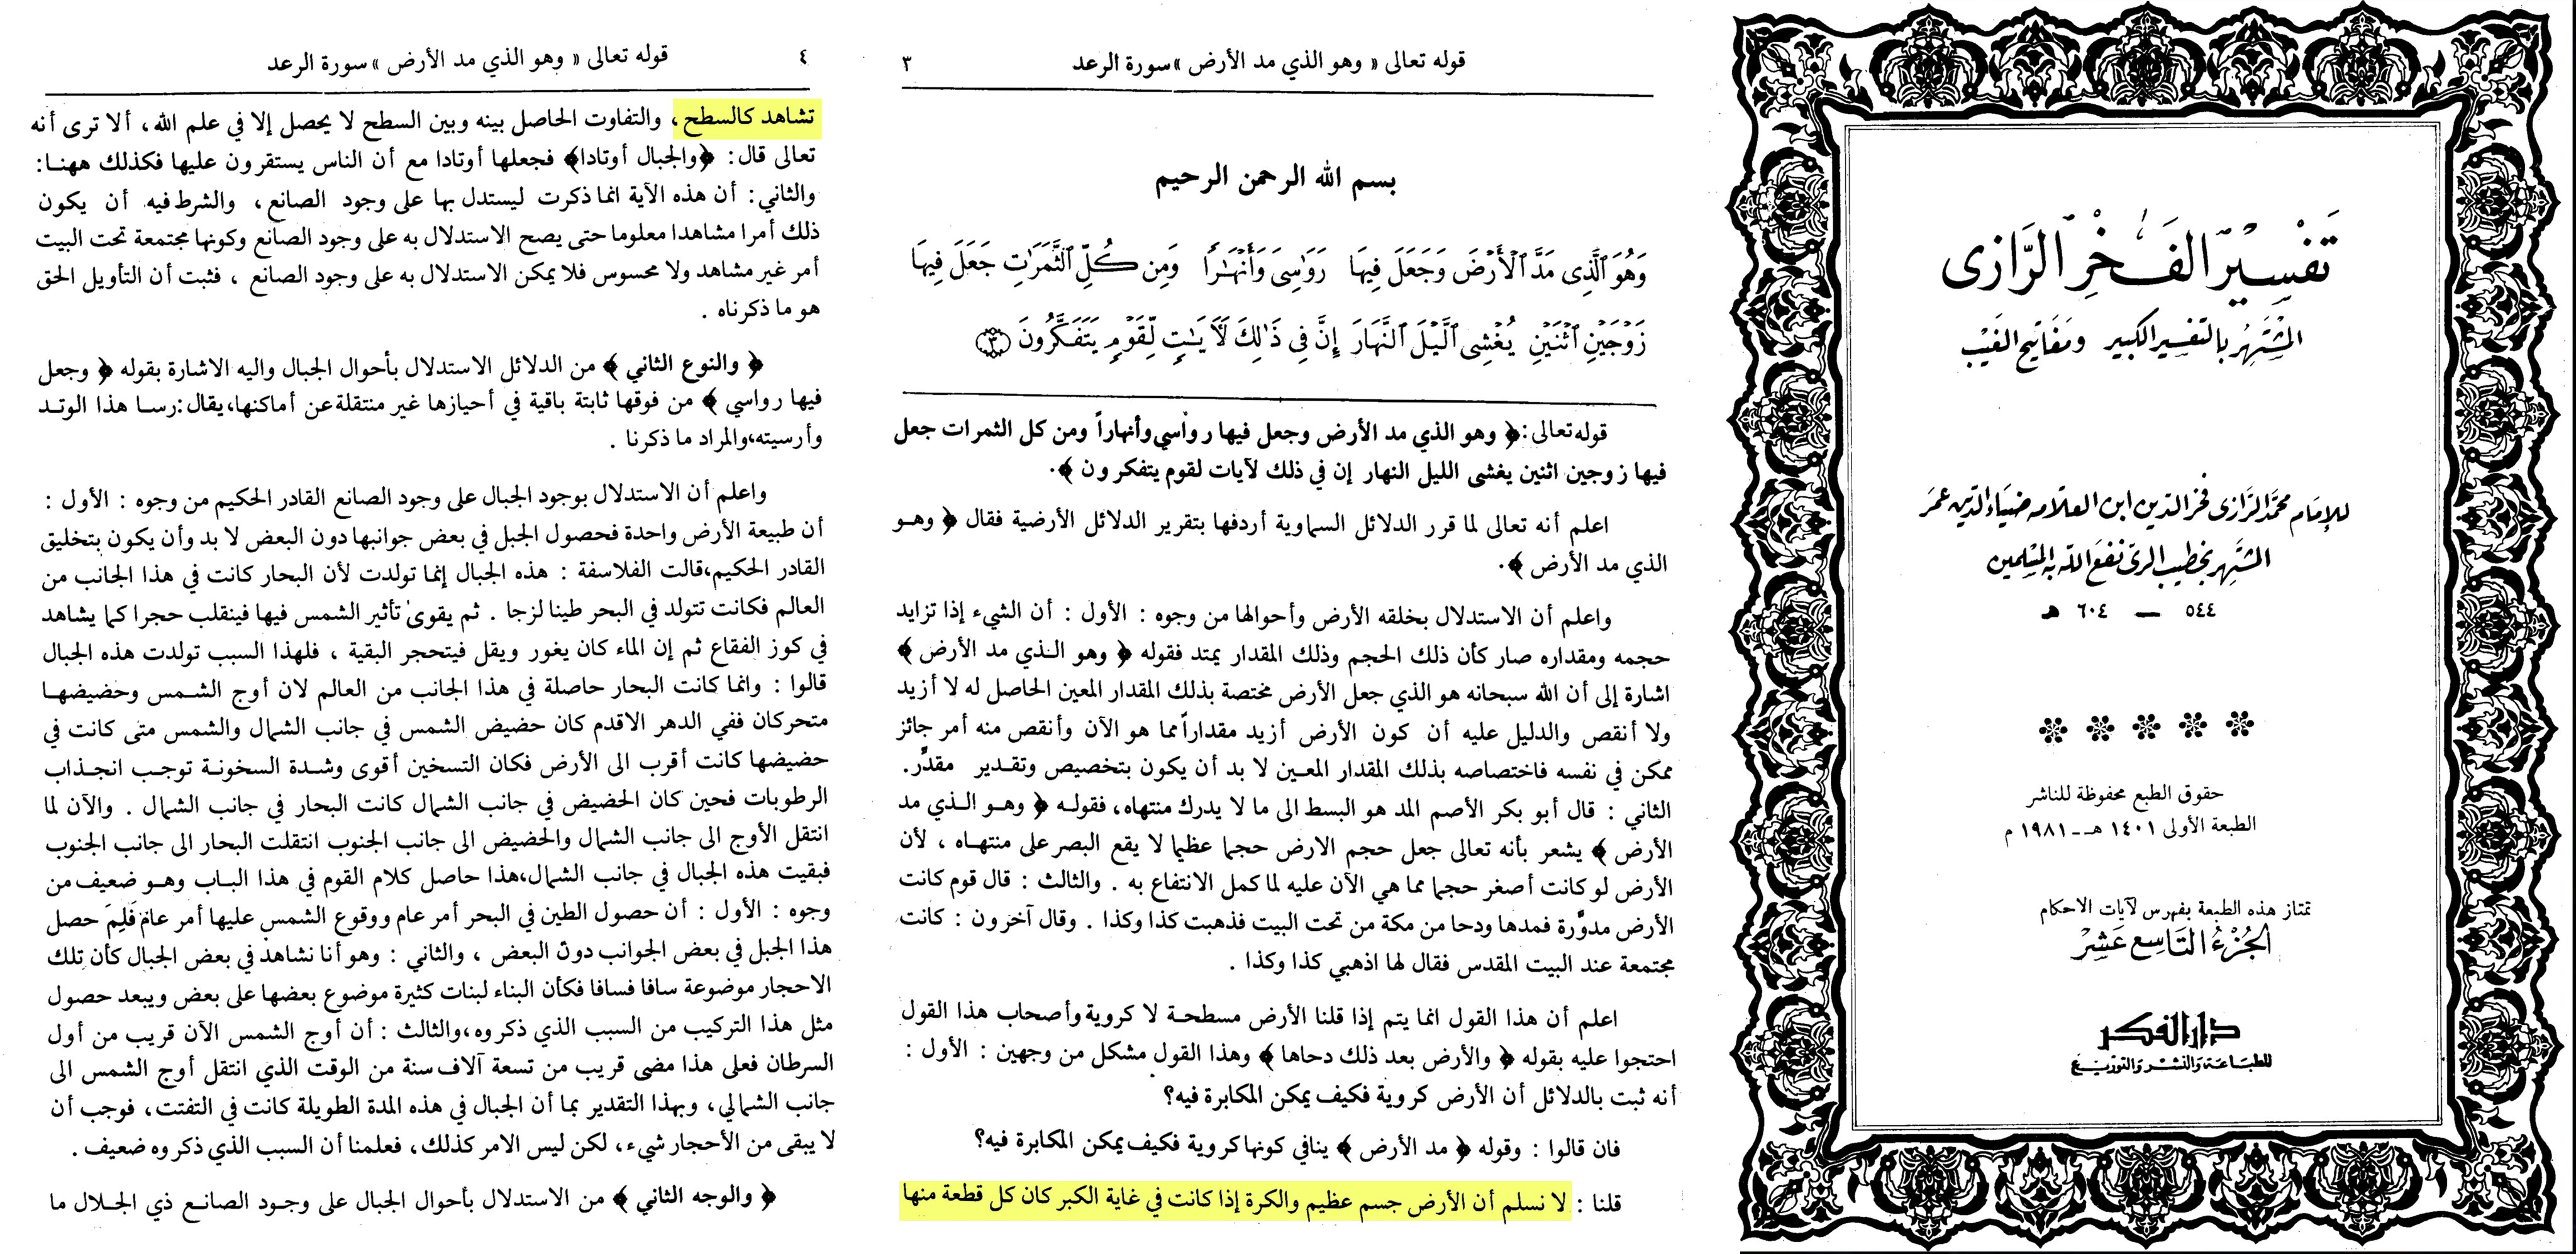 تفسير الفخر الرازي
المشتهر بالتفسير الكبير ومفاتيح الغيب
للإمام محمد الرازي فخر الدين ابن العلامة ضياء الدين عمر
المشتهر بخطيب الري نفع الله به المسلمين
٥٤٤ — ٦٠٤ هـ
حقوق الطبع محفوظة للناشر
الطبعة الأولى ١٤٠١ هـ - ١٩٨١ م
تمتاز هذه الطبعة بفهرس لآيات الاحكام
الجزء التاسع عشر
دار الفكر
للطباعة والنشر والتوزيع
قوله تعالى « وهو الذي مد الأرض » سورة الرعد ٣
بسم الله الرحمن الرحيم
وَهُوَ ٱلَّذِى مَدَّ ٱلْأَرْضَ وَجَعَلَ فِيهَا رَوَٰسِىَ وَأَنْهَٰرًا وَمِن كُلِّ ٱلثَّمَرَٰتِ جَعَلَ فِيهَا
زَوْجَيْنِ ٱثْنَيْنِ يُغْشِى ٱلَّيْلَ ٱلنَّهَارَ إِنَّ فِى ذَٰلِكَ لَآيَٰتٍ لِّقَوْمٍ يَتَفَكَّرُونَ ٣
قوله تعالى : ﴿ وهو الذي مد الأرض وجعل فيها رواسي وأنهاراً ومن كل الثمرات جعل
فيها زوجين اثنين يغشى الليل النهار إن في ذلك لآيات لقوم يتفكرون ﴾.
اعلم أنه تعالى لما قرر الدلائل السماوية أردفها بتقرير الدلائل الأرضية فقال ﴿ وهو
الذي مد الأرض ﴾.
واعلم أن الاستدلال بخلقه الأرض وأحوالها من وجوه : الأول : أن الشيء إذا تزايد
حجمه ومقداره صار كأن ذلك الحجم وذلك المقدار يمتد فقوله ﴿ وهو الذي مد الأرض ﴾
اشارة إلى أن الله سبحانه هو الذي جعل الأرض مختصة بذلك المقدار المعين الحاصل له لا أزيد
ولا أنقص والدليل عليه أن كون الأرض أزيد مقداراً مما هو الآن وأنقص منه أمر جائز
ممكن في نفسه فاختصاصه بذلك المقدار المعين لا بد أن يكون بتخصيص وتقدير مقدِّر.
الثاني : قال أبو بكر الأصم المد هو البسط الى ما لا يدرك منتهاه، فقوله ﴿ وهو الذي مد
الأرض ﴾ يشعر بأنه تعالى جعل حجم الارض حجما عظيما لا يقع البصر على منتهاه ، لأن
الأرض لو كانت أصغر حجما مما هي الآن عليه لما كمل الانتفاع به . والثالث : قال قوم كانت
الأرض مدوَّرة فمدها ودحا من مكة من تحت البيت فذهبت كذا وكذا . وقال آخرون : كانت
مجتمعة عند البيت المقدس فقال لها اذهبي كذا وكذا .
اعلم أن هذا القول انما يتم إذا قلنا الأرض مسطحة لا كروية وأصحاب هذا القول
احتجوا عليه بقوله ﴿ والأرض بعد ذلك دحاها ﴾ وهذا القول مشكل من وجهين : الأول :
أنه ثبت بالدلائل أن الأرض كروية فكيف يمكن المكابرة فيه؟
فان قالوا : وقوله ﴿ مد الأرض ﴾ ينافي كونها كروية فكيف يمكن المكابرة فيه؟
قلنا : لا نسلم أن الأرض جسم عظيم والكرة إذا كانت في غاية الكبر كان كل قطعة منها
قوله تعالى « وهو الذي مد الأرض » سورة الرعد ٤
تشاهد كالسطح ، والتفاوت الحاصل بينه وبين السطح لا يحصل إلا في علم الله، ألا ترى أنه
تعالى قال : ﴿والجبال أوتادا﴾ فجعلها أوتادا مع أن الناس يستقرون عليها فكذلك ههنا :
والثاني : أن هذه الآية انما ذكرت ليستدل بها على وجود الصانع ، والشرط فيه أن يكون
ذلك أمرا مشاهدا معلوما حتى يصح الاستدلال به على وجود الصانع وكونها مجتمعة تحت البيت
أمر غير مشاهد ولا محسوس فلا يمكن الاستدلال به على وجود الصانع ، فثبت أن التأويل الحق
هو ما ذكرناه .
﴿ والنوع الثاني ﴾ من الدلائل الاستدلال بأحوال الجبال واليه الاشارة بقوله ﴿ وجعل
فيها رواسي ﴾ من فوقها ثابتة باقية في أحيازها غير منتقلة عن أماكنها، يقال : رسا هذا الوتد
وأرسيته، والمراد ما ذكرنا .
واعلم أن الاستدلال بوجود الجبال على وجود الصانع القادر الحكيم من وجوه : الأول :
أن طبيعة الأرض واحدة فحصول الجبل في بعض جوانبها دون البعض لا بد وأن يكون بتخليق
القادر الحكيم، قالت الفلاسفة : هذه الجبال إنما تولدت لأن البحار كانت في هذا الجانب من
العالم فكانت تتولد في البحر طينا لزجا . ثم يقوى تأثير الشمس فيها فينقلب حجرا كما يشاهد
في كوز الفقاع ثم إن الماء كان يغور ويقل فيتحجر البقية ، فلهذا السبب تولدت هذه الجبال
قالوا : وانما كانت البحار حاصلة في هذا الجانب من العالم لان أوج الشمس وحضيضها
متحركان ففي الدهر الاقدم كان حضيض الشمس في جانب الشمال والشمس متى كانت في
حضيضها كانت أقرب الى الأرض فكان التسخين أقوى وشدة السخونة توجب انجذاب
الرطوبات فحين كان الحضيض في جانب الشمال كانت البحار في جانب الشمال . والآن لما
انتقل الأوج الى جانب الشمال والحضيض الى جانب الجنوب انتقلت البحار الى جانب الجنوب
فبقيت هذه الجبال في جانب الشمال، هذا حاصل كلام القوم في هذا الباب وهو ضعيف من
وجوه : الأول : أن حصول الطين في البحر أمر عام ووقوع الشمس عليها أمر عام فَلِمَ حصل
هذا الجبل في بعض الجوانب دون البعض ، والثاني : وهو أنا نشاهد في بعض الجبال كأن تلك
الاحجار موضوعة سافا فسافا فكأن البناء لبنات كثيرة موضوع بعضها على بعض ويبعد حصول
مثل هذا التركيب من السبب الذي ذكروه، والثالث : أن أوج الشمس الآن قريب من أول
السرطان فعلى هذا مضى قريب من تسعة آلاف سنة من الوقت الذي انتقل أوج الشمس الى
جانب الشمالي، وبهذا التقدير بما أن الجبال في هذه المدة الطويلة كانت في التفتت، فوجب أن
لا يبقى من الأحجار شيء، لكن ليس الامر كذلك، فعلمنا أن السبب الذي ذكروه ضعيف .
﴿ والوجه الثاني ﴾ من الاستدلال بأحوال الجبال على وجود الصانع ذي الجلال ما